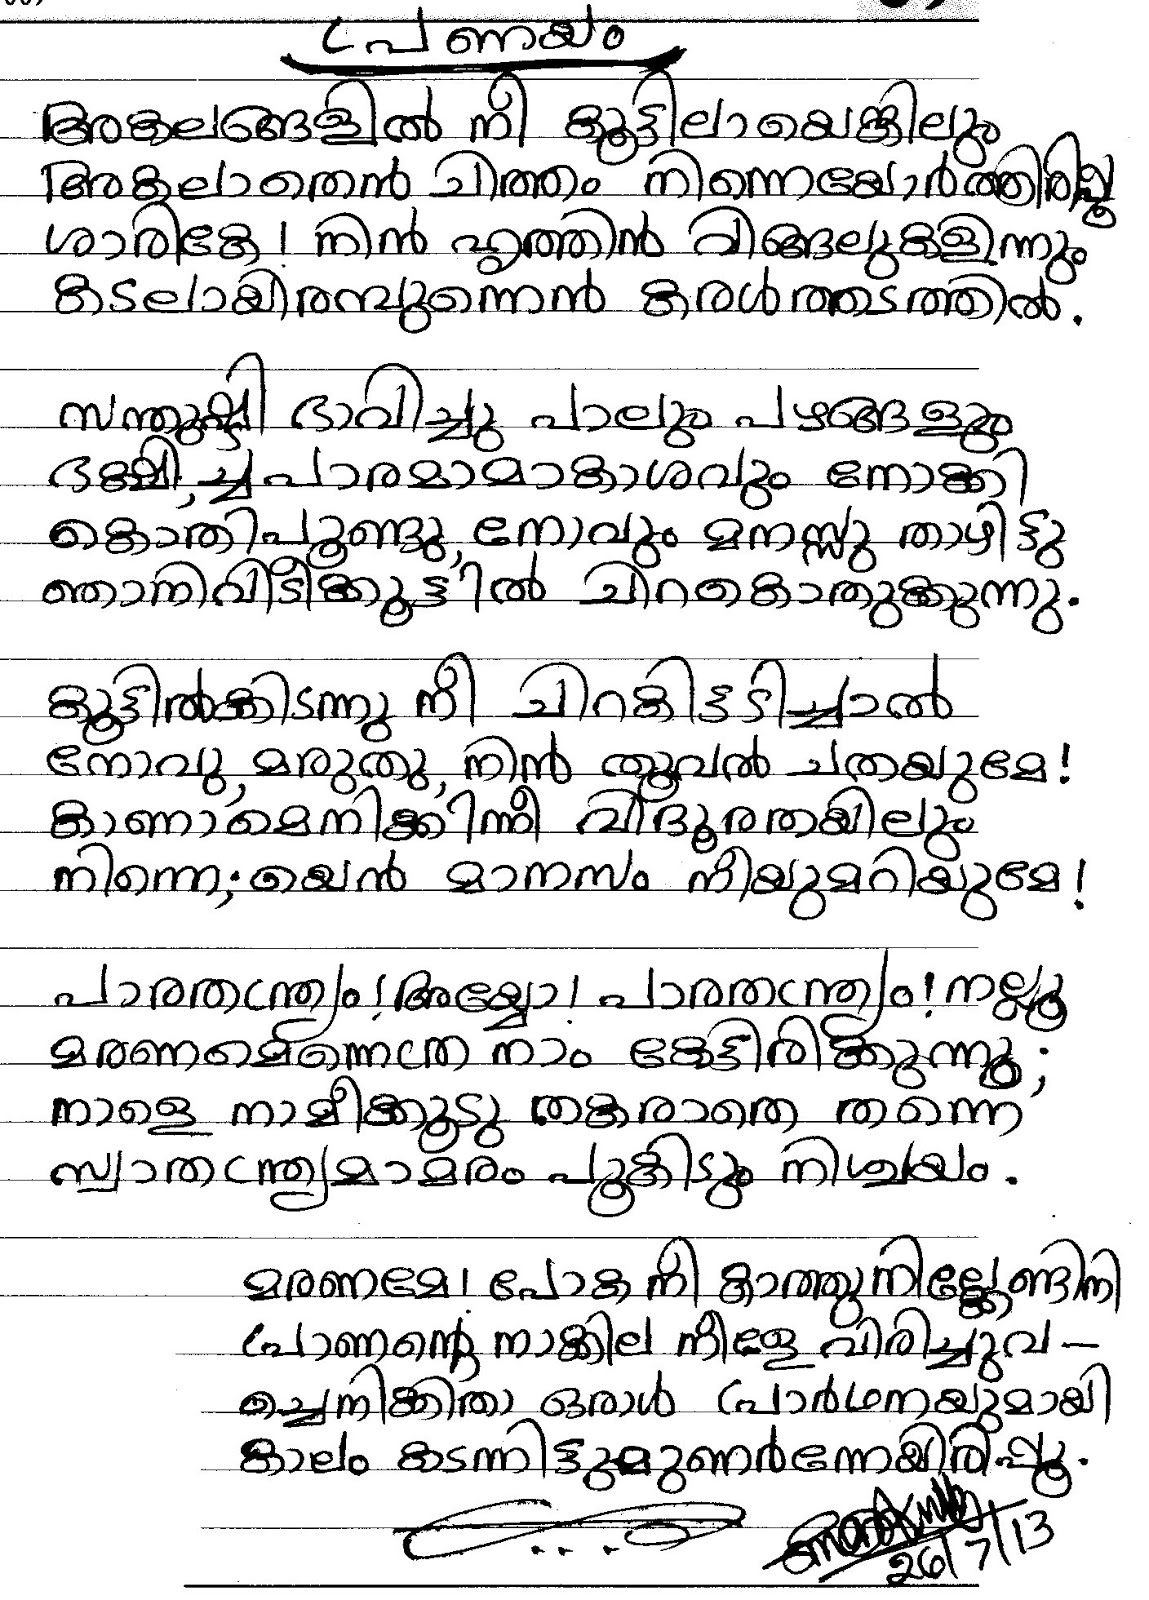 പ്രണയം
അകലങ്ങളിൽ നീ കൂട്ടിലായെങ്കിലും
അകലാതെൻ ചിത്തം നിന്നെയോർത്തിരിപ്പൂ
ശാരികേ! നിൻ ഹൃത്തിൻ വിങ്ങലുകളിന്നും
കടലായിരമ്പുന്നെൻ കരൾത്തടത്തിൽ.
സന്തുഷ്ടി ഭാവിച്ചു പാലും പഴങ്ങളും
ഭക്ഷിച്ചപാരമാമാകാശവും നോക്കി
കൊതിപൂണ്ടു, നോവും മനസ്സു താഴിട്ടു
ഞാനിവിടീക്കൂട്ടിൽ ചിറകൊതുക്കുന്നു.
കൂട്ടിൽക്കിടന്നു നീ ചിറകിട്ടടിച്ചാൽ
നോവു, മരുതു, നിൻ തൂവൽ ചതയുമേ!
കാണാമെനിക്കിന്നീ വിദൂരതയിലും
നിന്നെ; യെൻ മാനസം നീയുമറിയുമേ!
പാരതന്ത്ര്യം! അയ്യോ! പാരതന്ത്ര്യം! നല്ലൂ
മരണമെന്നെത്ര നാം കേട്ടിരിക്കുന്നു;
നാളെ നാമീക്കൂടു തകരാതെ തന്നെ
സ്വാതന്ത്ര്യമാമരം പൂകിടും നിശ്ചയം.
മരണമേ! പോക നീ കാത്തുനില്ക്കേണ്ടിനി
പ്രാണന്റെ നാക്കില നീളേ വിരിച്ചുവ-
ച്ചെനിക്കിതാ ഒരാൾ പ്രാർഥനയുമായി
കാലം കടന്നിട്ടുമുണർന്നേയിരിപ്പൂ.
26/7/13